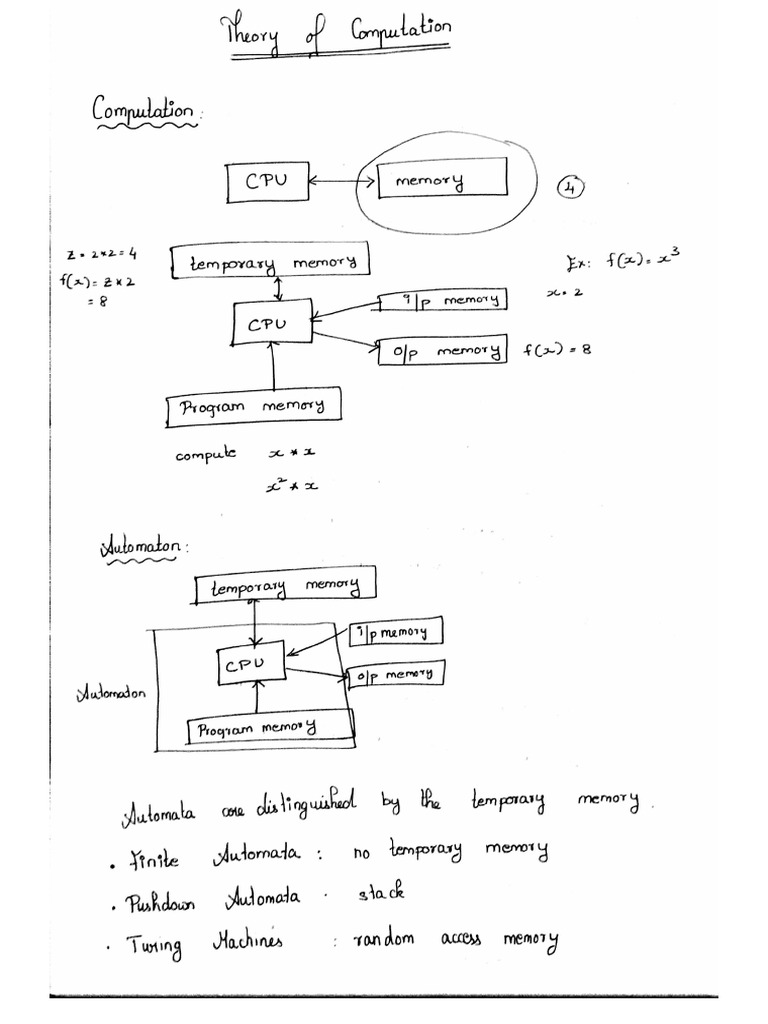 Theory of Computation
Computation:
CPU
memory
4
z = 2*2 = 4
f(x) = z*2
= 8
temporary memory
Ex: f(x) = x³
x = 2
i/p memory
CPU
o/p memory
f(x) = 8
Program memory
compute x * x
x² * x
Automaton:
temporary memory
i/p memory
CPU
o/p memory
Automaton
Program memory
Automata are distinguished by the temporary memory.
• Finite Automata : no temporary memory
• Pushdown Automata . stack
• Turing Machines : random access memory